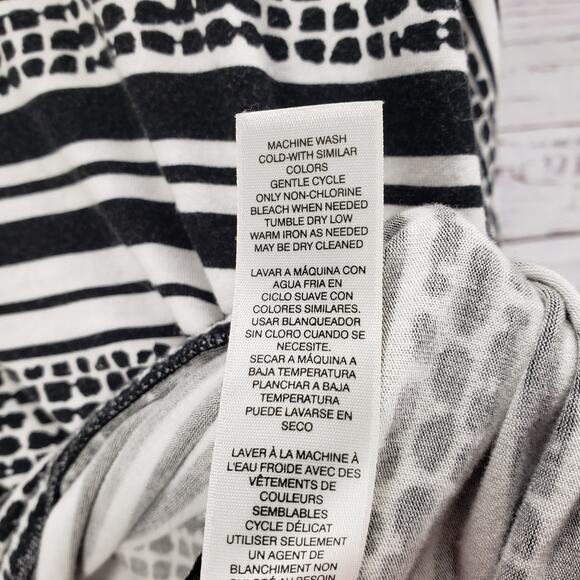 MACHINE WASH
COLD-WITH SIMILAR
COLORS
GENTLE CYCLE
ONLY NON-CHLORINE
BLEACH WHEN NEEDED
TUMBLE DRY LOW
WARM IRON AS NEEDED
MAY BE DRY CLEANED
LAVAR A MÁQUINA CON
AGUA FRIA EN
CICLO SUAVE CON
COLORES SIMILARES.
USAR BLANQUEADOR
SIN CLORO CUANDO SE
NECESITE.
SECAR A MÁQUINA A
BAJA TEMPERATURA
PLANCHAR A BAJA
TEMPERATURA
PUEDE LAVARSE EN
SECO
LAVER À LA MACHINE À
L'EAU FROIDE AVEC DES
VÊTEMENTS DE
COULEURS
SEMBLABLES
CYCLE DÉLICAT
UTILISER SEULEMENT
UN AGENT DE
BLANCHIMENT NON
AU BESOIN